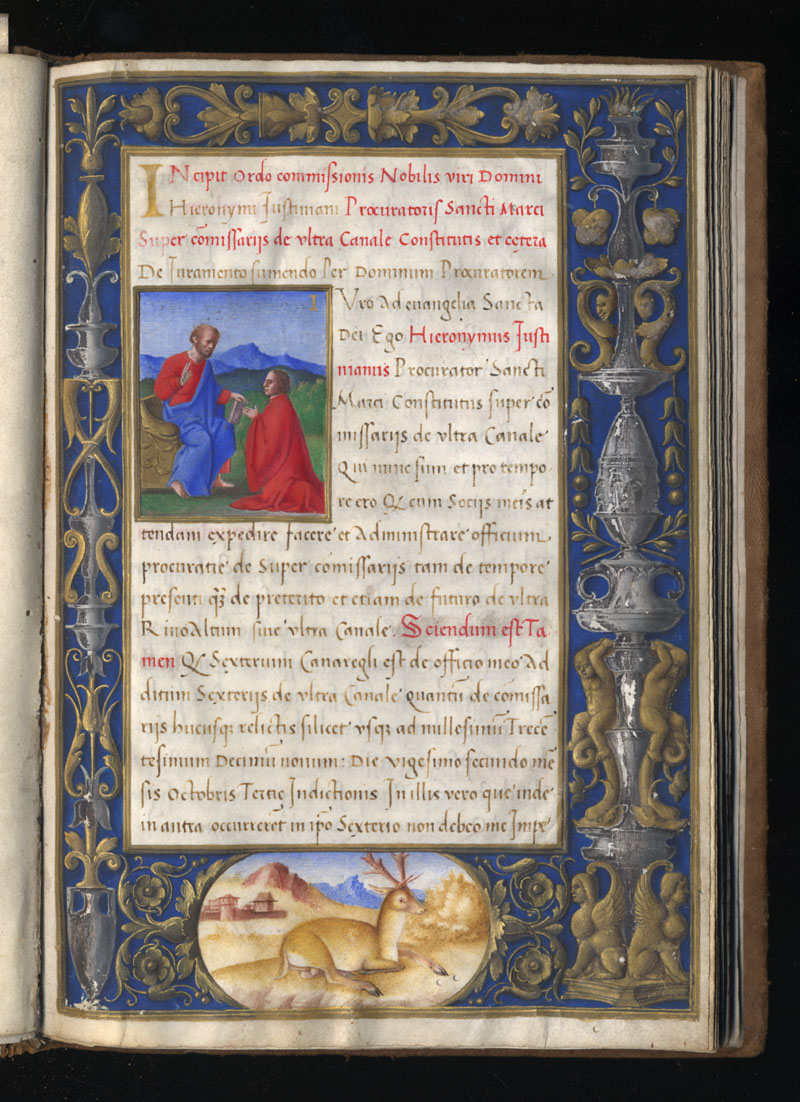 INcipit Ordo commissionis Nobilis viri Domini
Hieronymi Justiniani Procuratoris Sancti Marci
Super cõmissarijs de vltra Canale Constitutis et cętera
De Juramento sumendo Per Dominum Procuratorem
I Vro Ad euangelia Sancta
Dei Ego Hieronymus Justi
nianus Procurator Sancti
Marci Constitutus super cõ
missarijs de vltra Canale
Qui nunc sum et pro tempo
re ero Q cum Socijs meis at
tendam expedire facere et Administrare officium
procuratie de Super comissarijs tam de tempore
presenti q̃ de preterito et etiam de futuro de vltra
RiuoAltum siue vltra Canale. Sciendum est Ta
men Q Sexterium Canaregli est de officio meo Ad
ditum Sexterijs de vltra Canale quantũ de comissa
rijs hucusq relictis silicet vsq ad millesimũ Trece
tesimum Decimũ nonum: Die vigesimo secundo mẽ
sis Octobris Tertię Indictionis In illis vero quę inde
in antea occurreret in ip̃o Sexterio non debeo me Impe